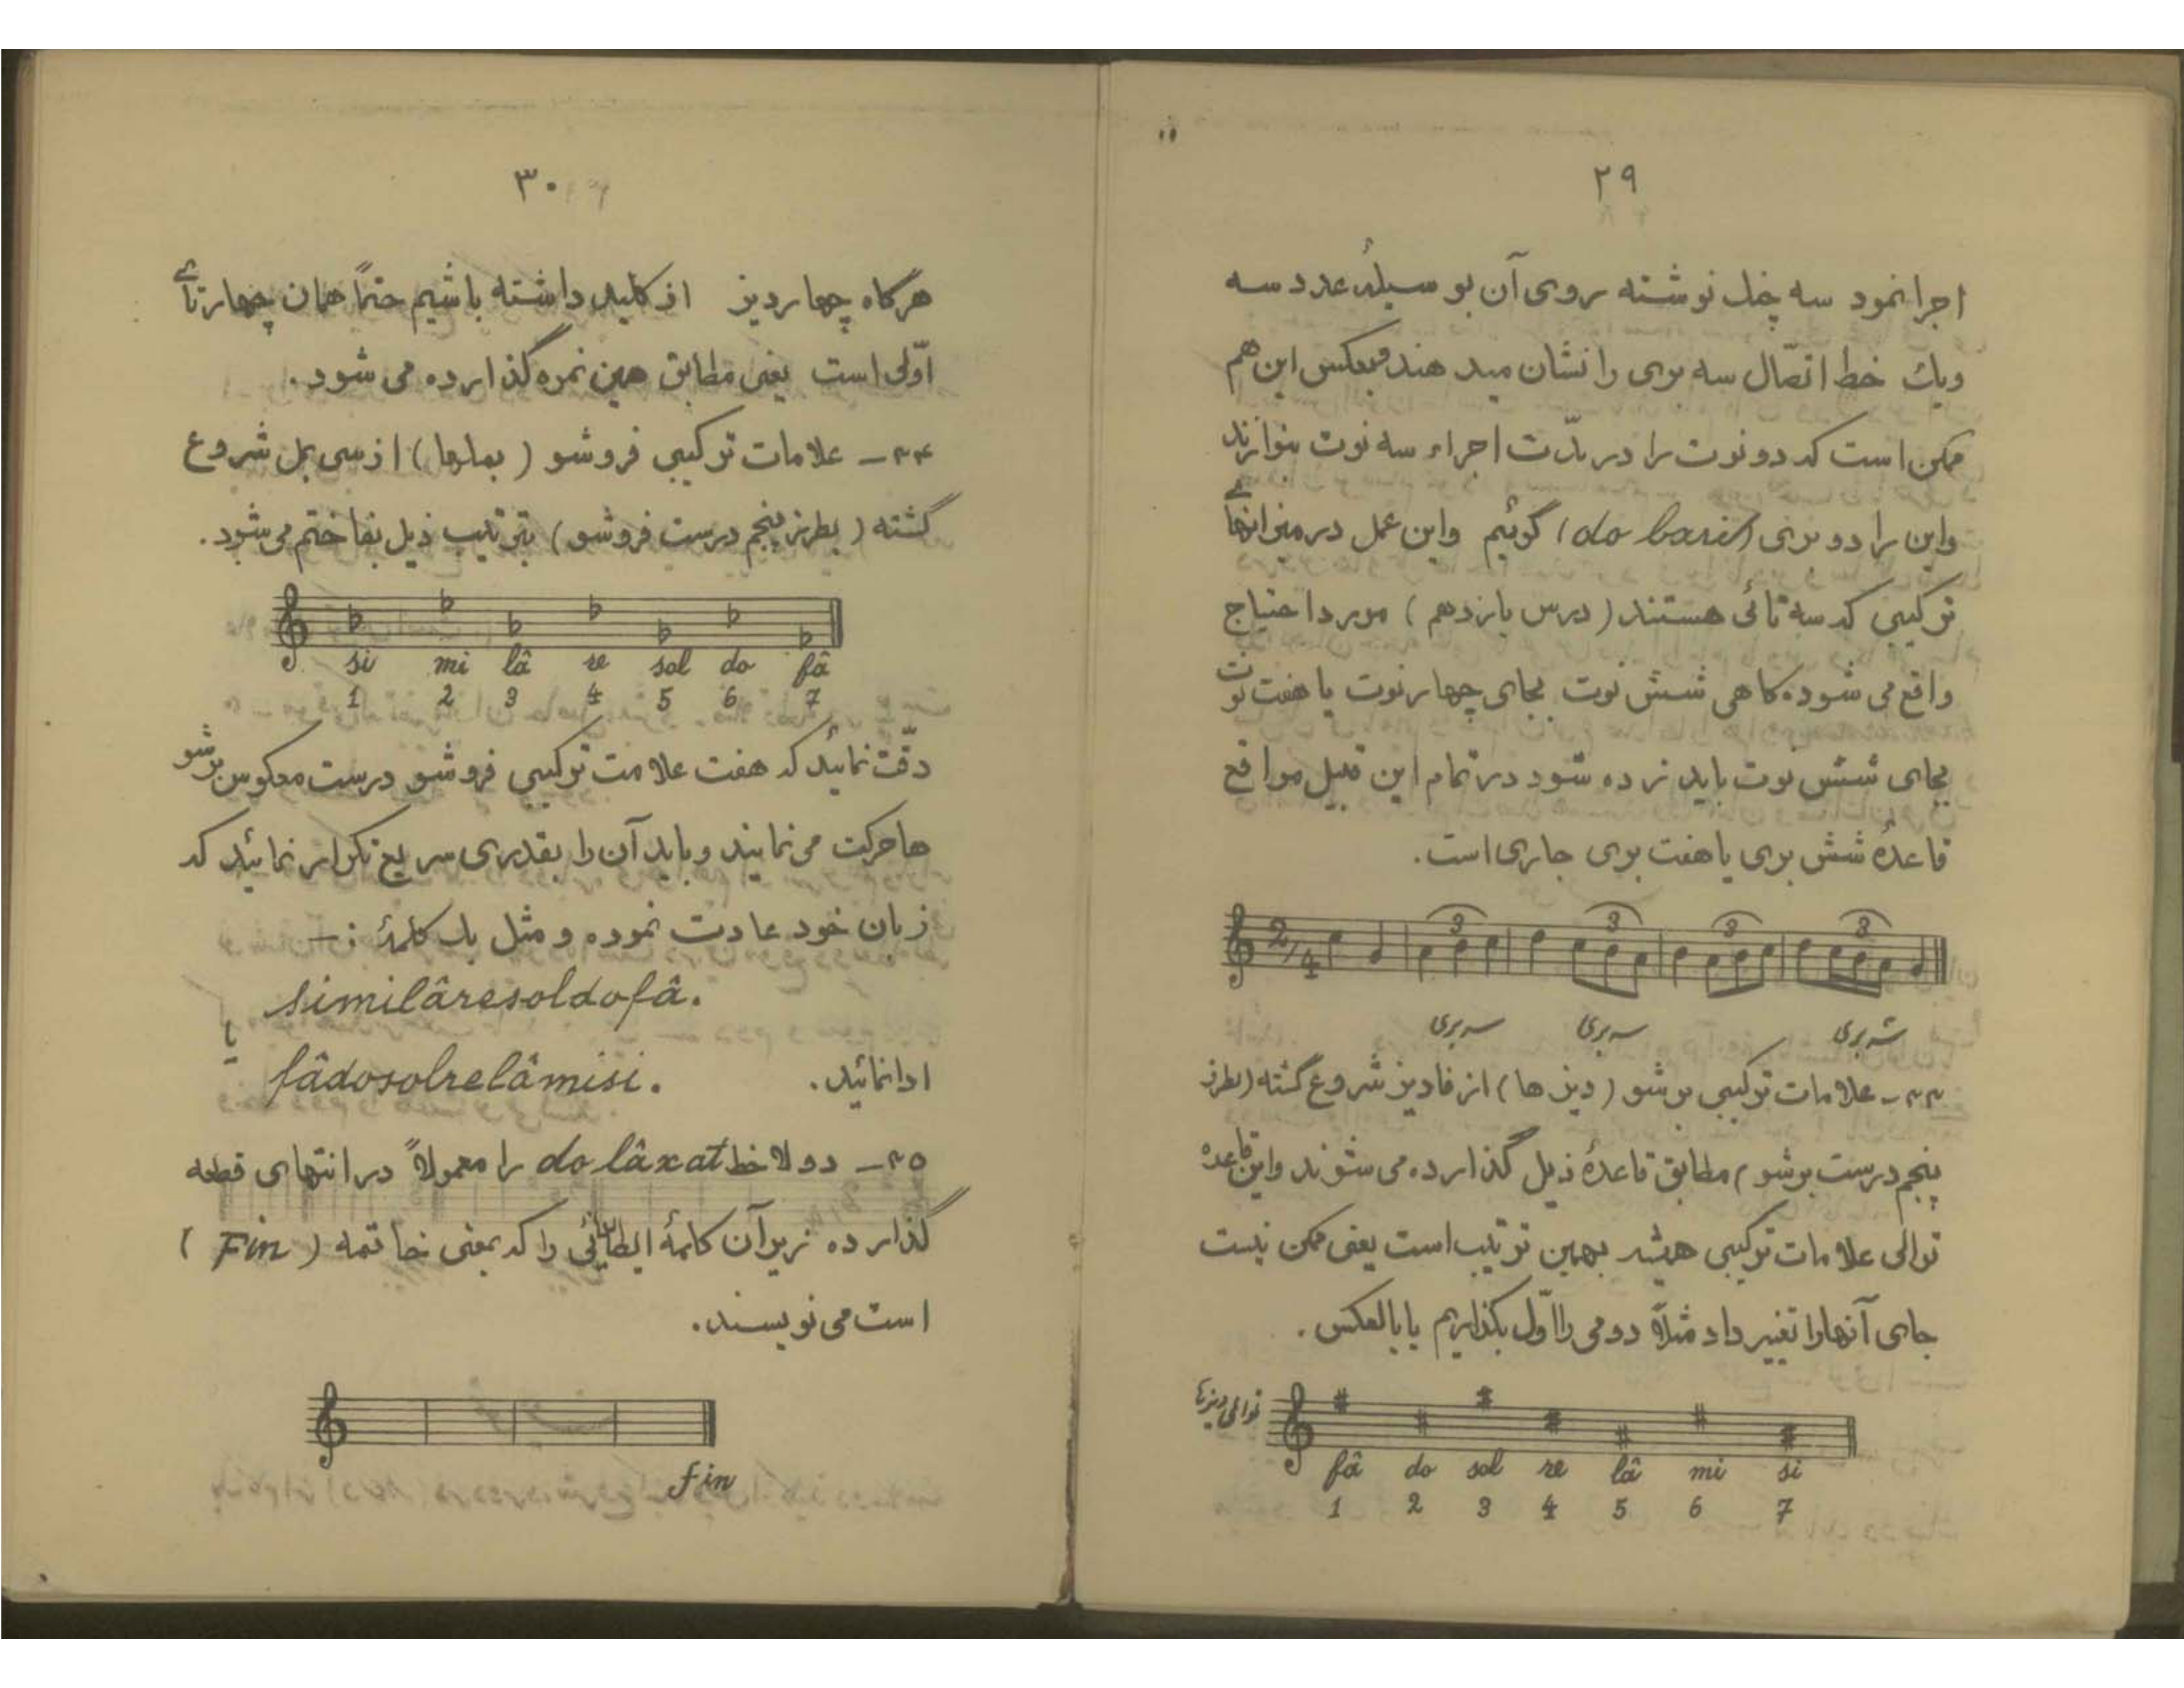 ۲۹
اجرا نمود سه چنگ نوشته روی آن بوسیلهٔ عدد سه
ویک خط اتصّال سه بری را نشان میدهند و بعکس این هم
ممکن است که دو نوت را در مدّت اجراء سه نوت بنوازند
واین را دو بری (do barei) گوئیم واین عمل در میزانهای
ترکیبی که سه تائی هستند (درس یازدهم) مورد احتیاج
واقع می شود گاهی شش نوت بجای چهار نوت یا هفت نوت
بجای شش نوت باید زده شود در تمام این قبیل مواقع
قاعدهٔ شش بری یا هفت بری جاری است.
2/4 3 3 3 3
سه بری سه بری سه بری
۳۳ـ علامات ترکیبی برشو (دیزها) از فا دیز شروع گشته (بطرز
پنجم درست برشو) مطابق قاعدهٔ ذیل گذارده می شوند واین قاعده
توالی علامات ترکیبی همیشه بهمین ترتیب است یعنی ممکن نیست
جای آنهارا تغییر داد مثلاً دومی را اوّل بگذاریم یا بالعکس.
توالی دیزها
fâ do sol re lâ mi si
1 2 3 4 5 6 7
۳۰
هرگاه چهار دیز از کلید داشته باشیم حتماً همان چهارتای
اوّلی است یعنی مطابق همین نمره گذارده می شود.
۳۴ـ علامات ترکیبی فروشو (بملها) از سی بمل شروع
گشته (بطرز پنجم درست فروشو) بترتیب ذیل بفا ختم می شود.
si mi lâ re sol do fâ
1 2 3 4 5 6 7
دقّت نمائید که هفت علامت ترکیبی فروشو درست معکوس برشو
ها حرکت می نمایند و باید آن را بقدری سریع تکرار نمائید که
زبان خود عادت نموده و مثل یک کلمهٔ :ـ
similâresoldofâ.
یا
fâdosolrelâmisi. ادا نمائید.
۳۵ـ دو لا خط do lâ xat را معمولاً در انتهای قطعه
گذارده زیر آن کلمهٔ ایطالیائی را که بمعنی خاتمه (Fin)
است می نویسند.
fin